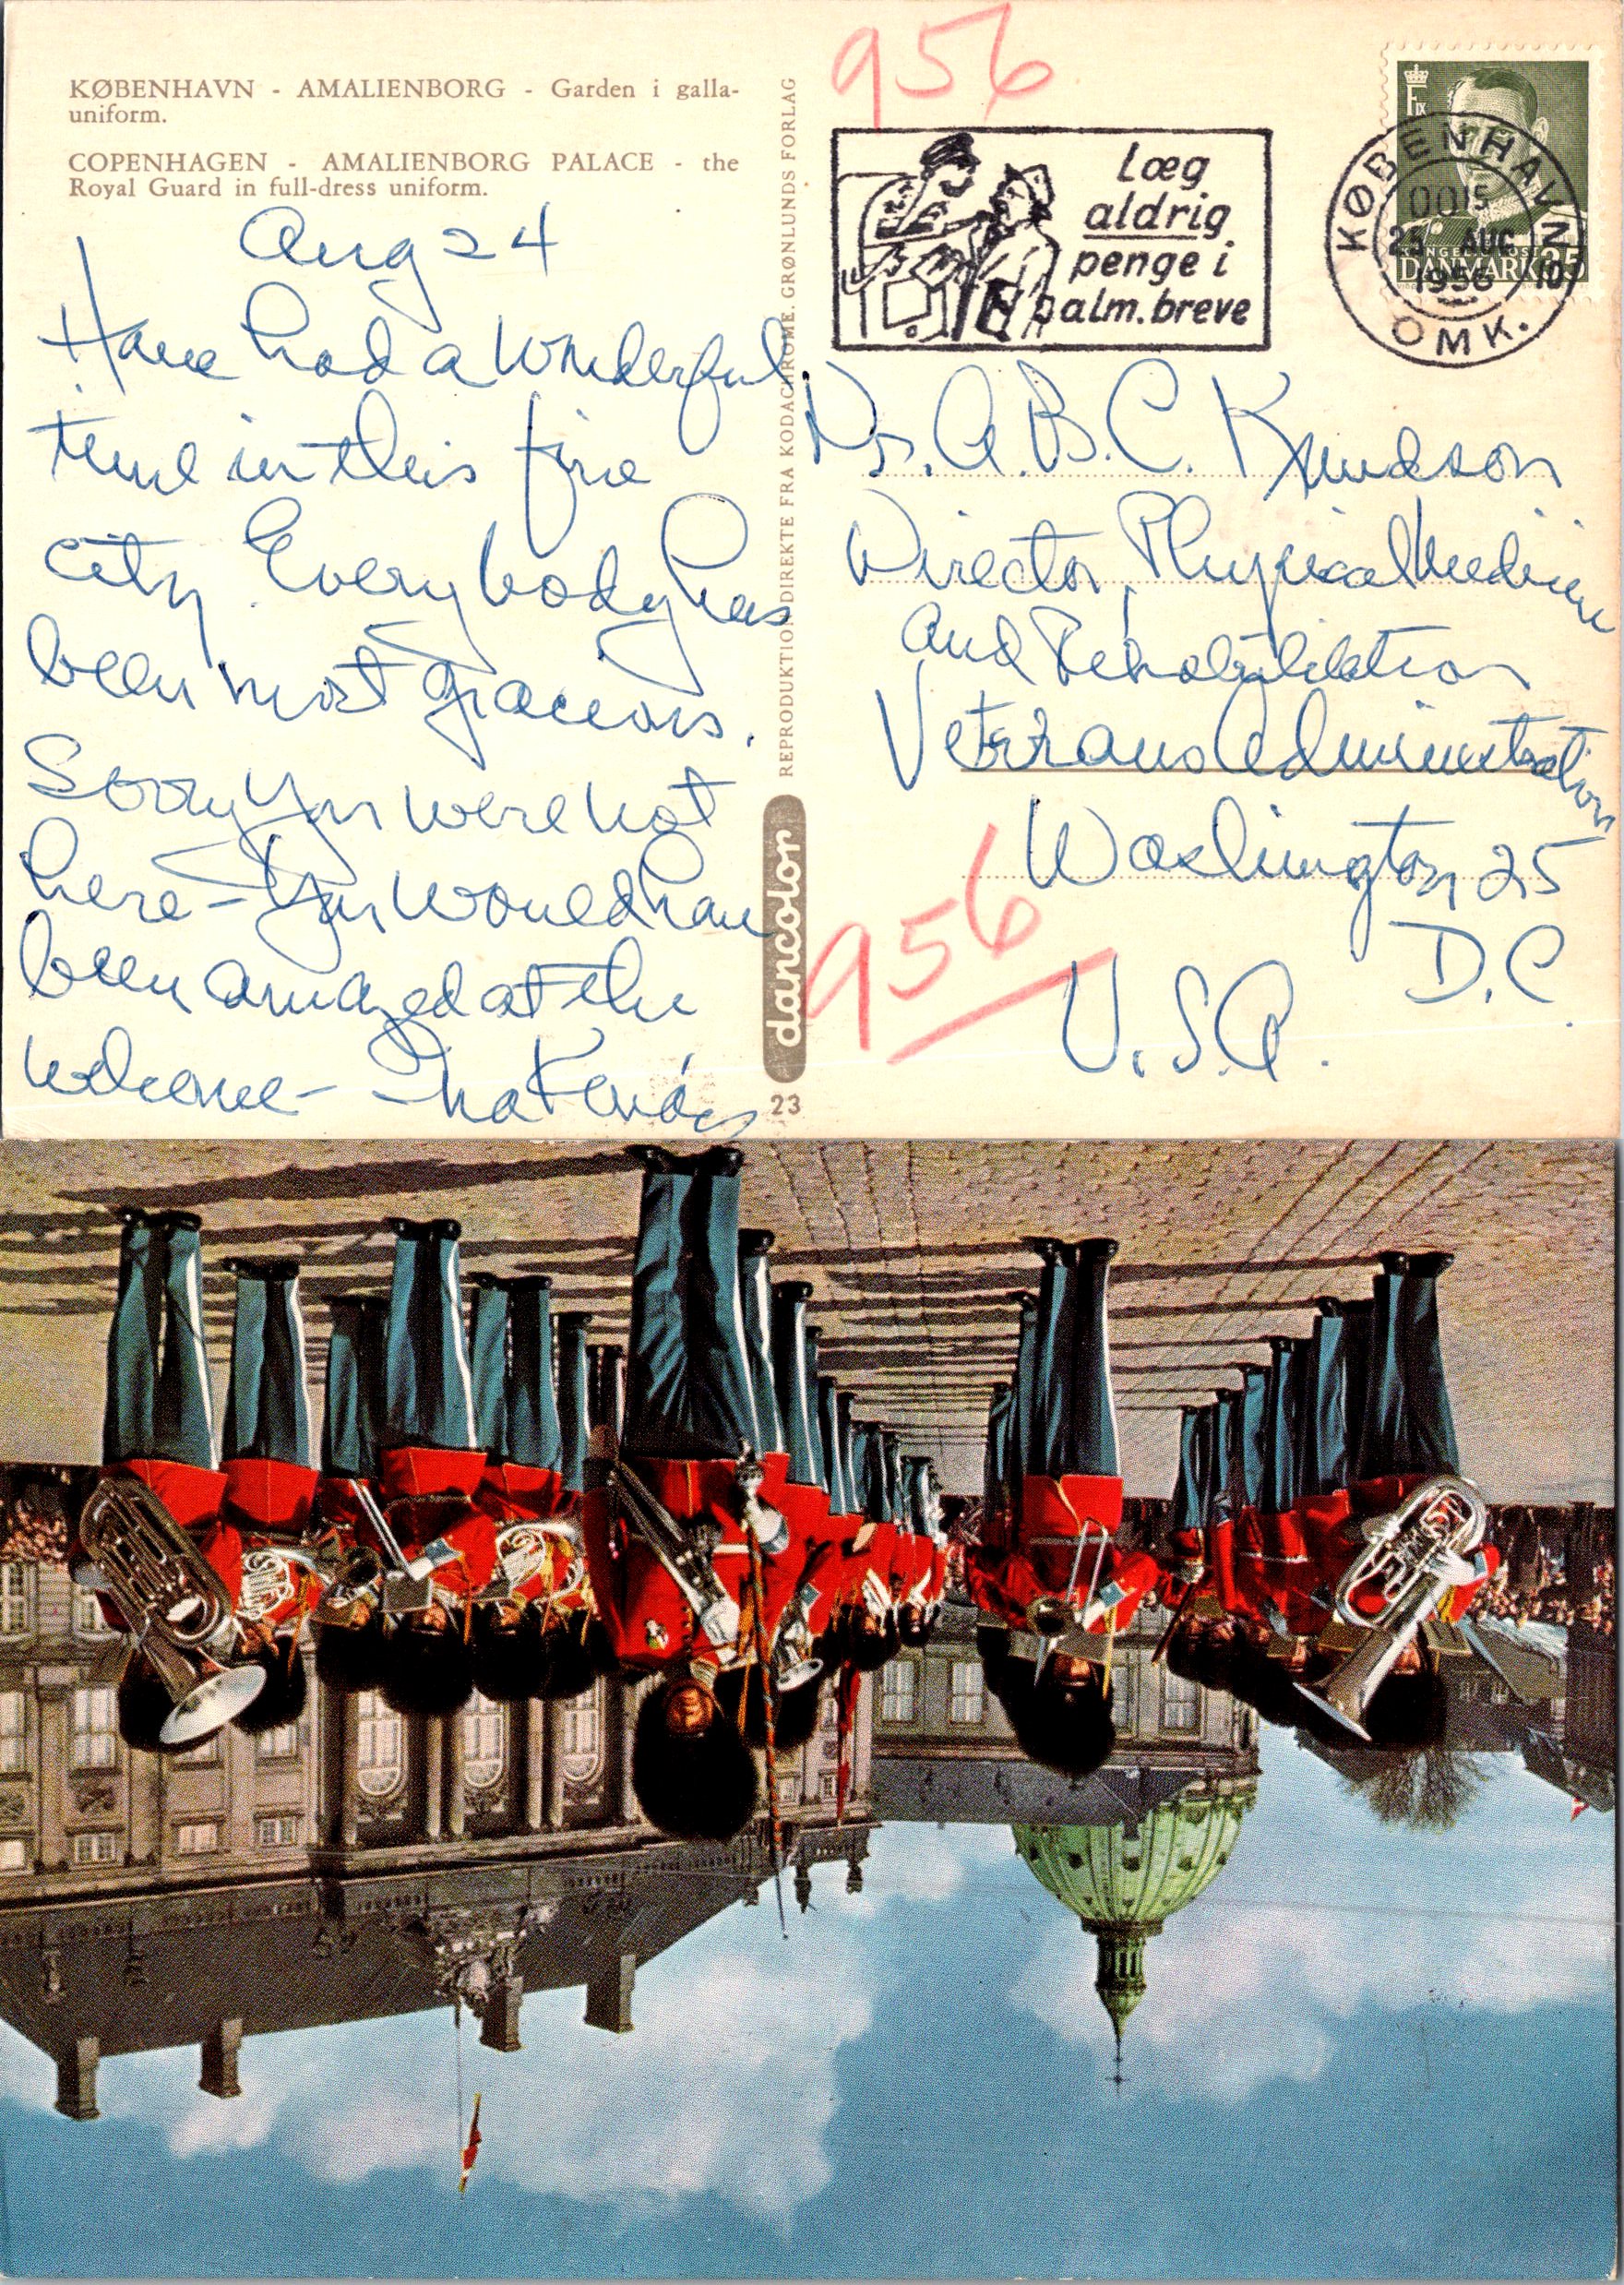 KØBENHAVN - AMALIENBORG - Garden i galla-
uniform.
COPENHAGEN - AMALIENBORG PALACE - the
Royal Guard in full-dress uniform.
Aug 24
Have had a wonderful
time in this fine
city. Everybody has
been most gracious.
Sorry you were not
here - You would have
been amazed at the
welcome -
REPRODUKTION DIREKTE FRA KODACHROME. GRØNLUNDS FORLAG
dancolor
23
956
Læg
aldrig
penge i
alm. breve
KØBENHAVN
OMK.
0015
25 AUG
1956
10
DANMARK 25
Dr. A.B.C. Knudson
Director, Physical Medicine
and Rehabilitation
Veterans Administration
Washington 25
D.C.
U.S.A.
956